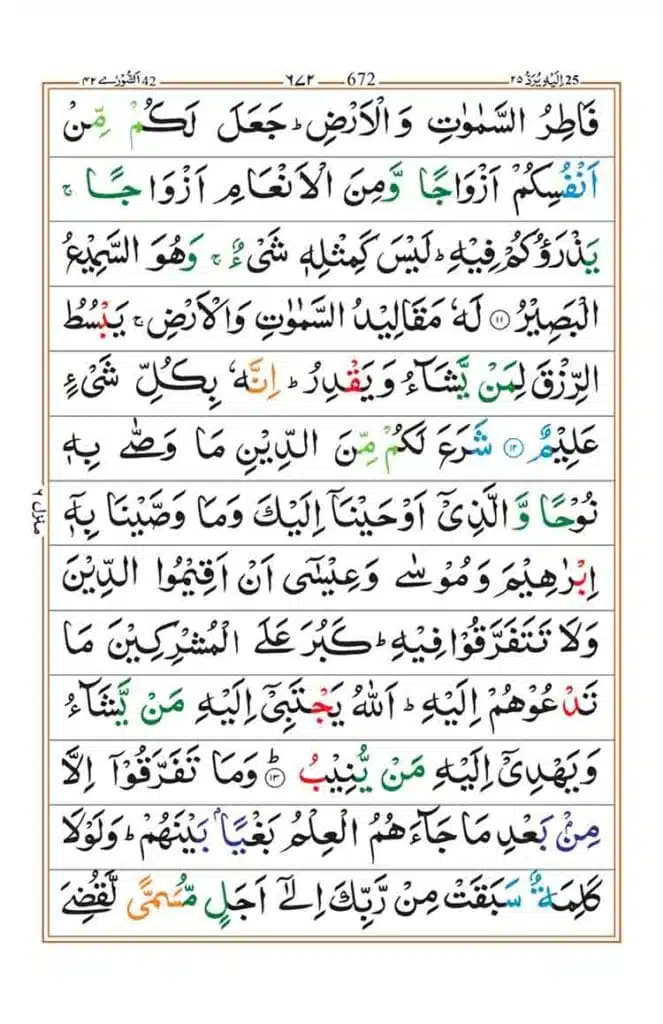 اِلَیْہِ یُرَدُّ ۲۵ 25 672 ٦٧٢ اَلشُّوْرٰے ۴۲ 42
فَاطِرُ السَّمٰوٰتِ وَالْاَرْضِ ؕ جَعَلَ لَكُمْ مِّنْ
اَنْفُسِكُمْ اَزْوَاجًا وَّمِنَ الْاَنْعَامِ اَزْوَاجًا ۚ
يَذْرَؤُكُمْ فِيْهِ ؕ لَيْسَ كَمِثْلِهٖ شَيْءٌ ۚ وَهُوَ السَّمِيْعُ
الْبَصِيْرُ ۝۱۱ لَهٗ مَقَالِيْدُ السَّمٰوٰتِ وَالْاَرْضِ ۚ يَبْسُطُ
الرِّزْقَ لِمَنْ يَّشَآءُ وَيَقْدِرُ ؕ اِنَّهٗ بِكُلِّ شَيْءٍ
عَلِيْمٌ ۝۱۲ شَرَعَ لَكُمْ مِّنَ الدِّيْنِ مَا وَصّٰى بِهٖ
نُوْحًا وَّالَّذِيْۤ اَوْحَيْنَاۤ اِلَيْكَ وَمَا وَصَّيْنَا بِهٖۤ
اِبْرٰهِيْمَ وَمُوْسٰى وَعِيْسٰۤى اَنْ اَقِيْمُوا الدِّيْنَ
وَلَا تَتَفَرَّقُوْا فِيْهِ ؕ كَبُرَ عَلَى الْمُشْرِكِيْنَ مَا
تَدْعُوْهُمْ اِلَيْهِ ؕ اَللّٰهُ يَجْتَبِيْۤ اِلَيْهِ مَنْ يَّشَآءُ
وَيَهْدِيْۤ اِلَيْهِ مَنْ يُّنِيْبُ ؕ ۝۱۳ وَمَا تَفَرَّقُوْۤا اِلَّا
مِنْۢ بَعْدِ مَا جَآءَهُمُ الْعِلْمُ بَغْيًاۢ بَيْنَهُمْ ؕ وَلَوْلَا
كَلِمَةٌ سَبَقَتْ مِنْ رَّبِّكَ اِلٰۤى اَجَلٍ مُّسَمًّى لَّقُضِيَ
منزل ٦